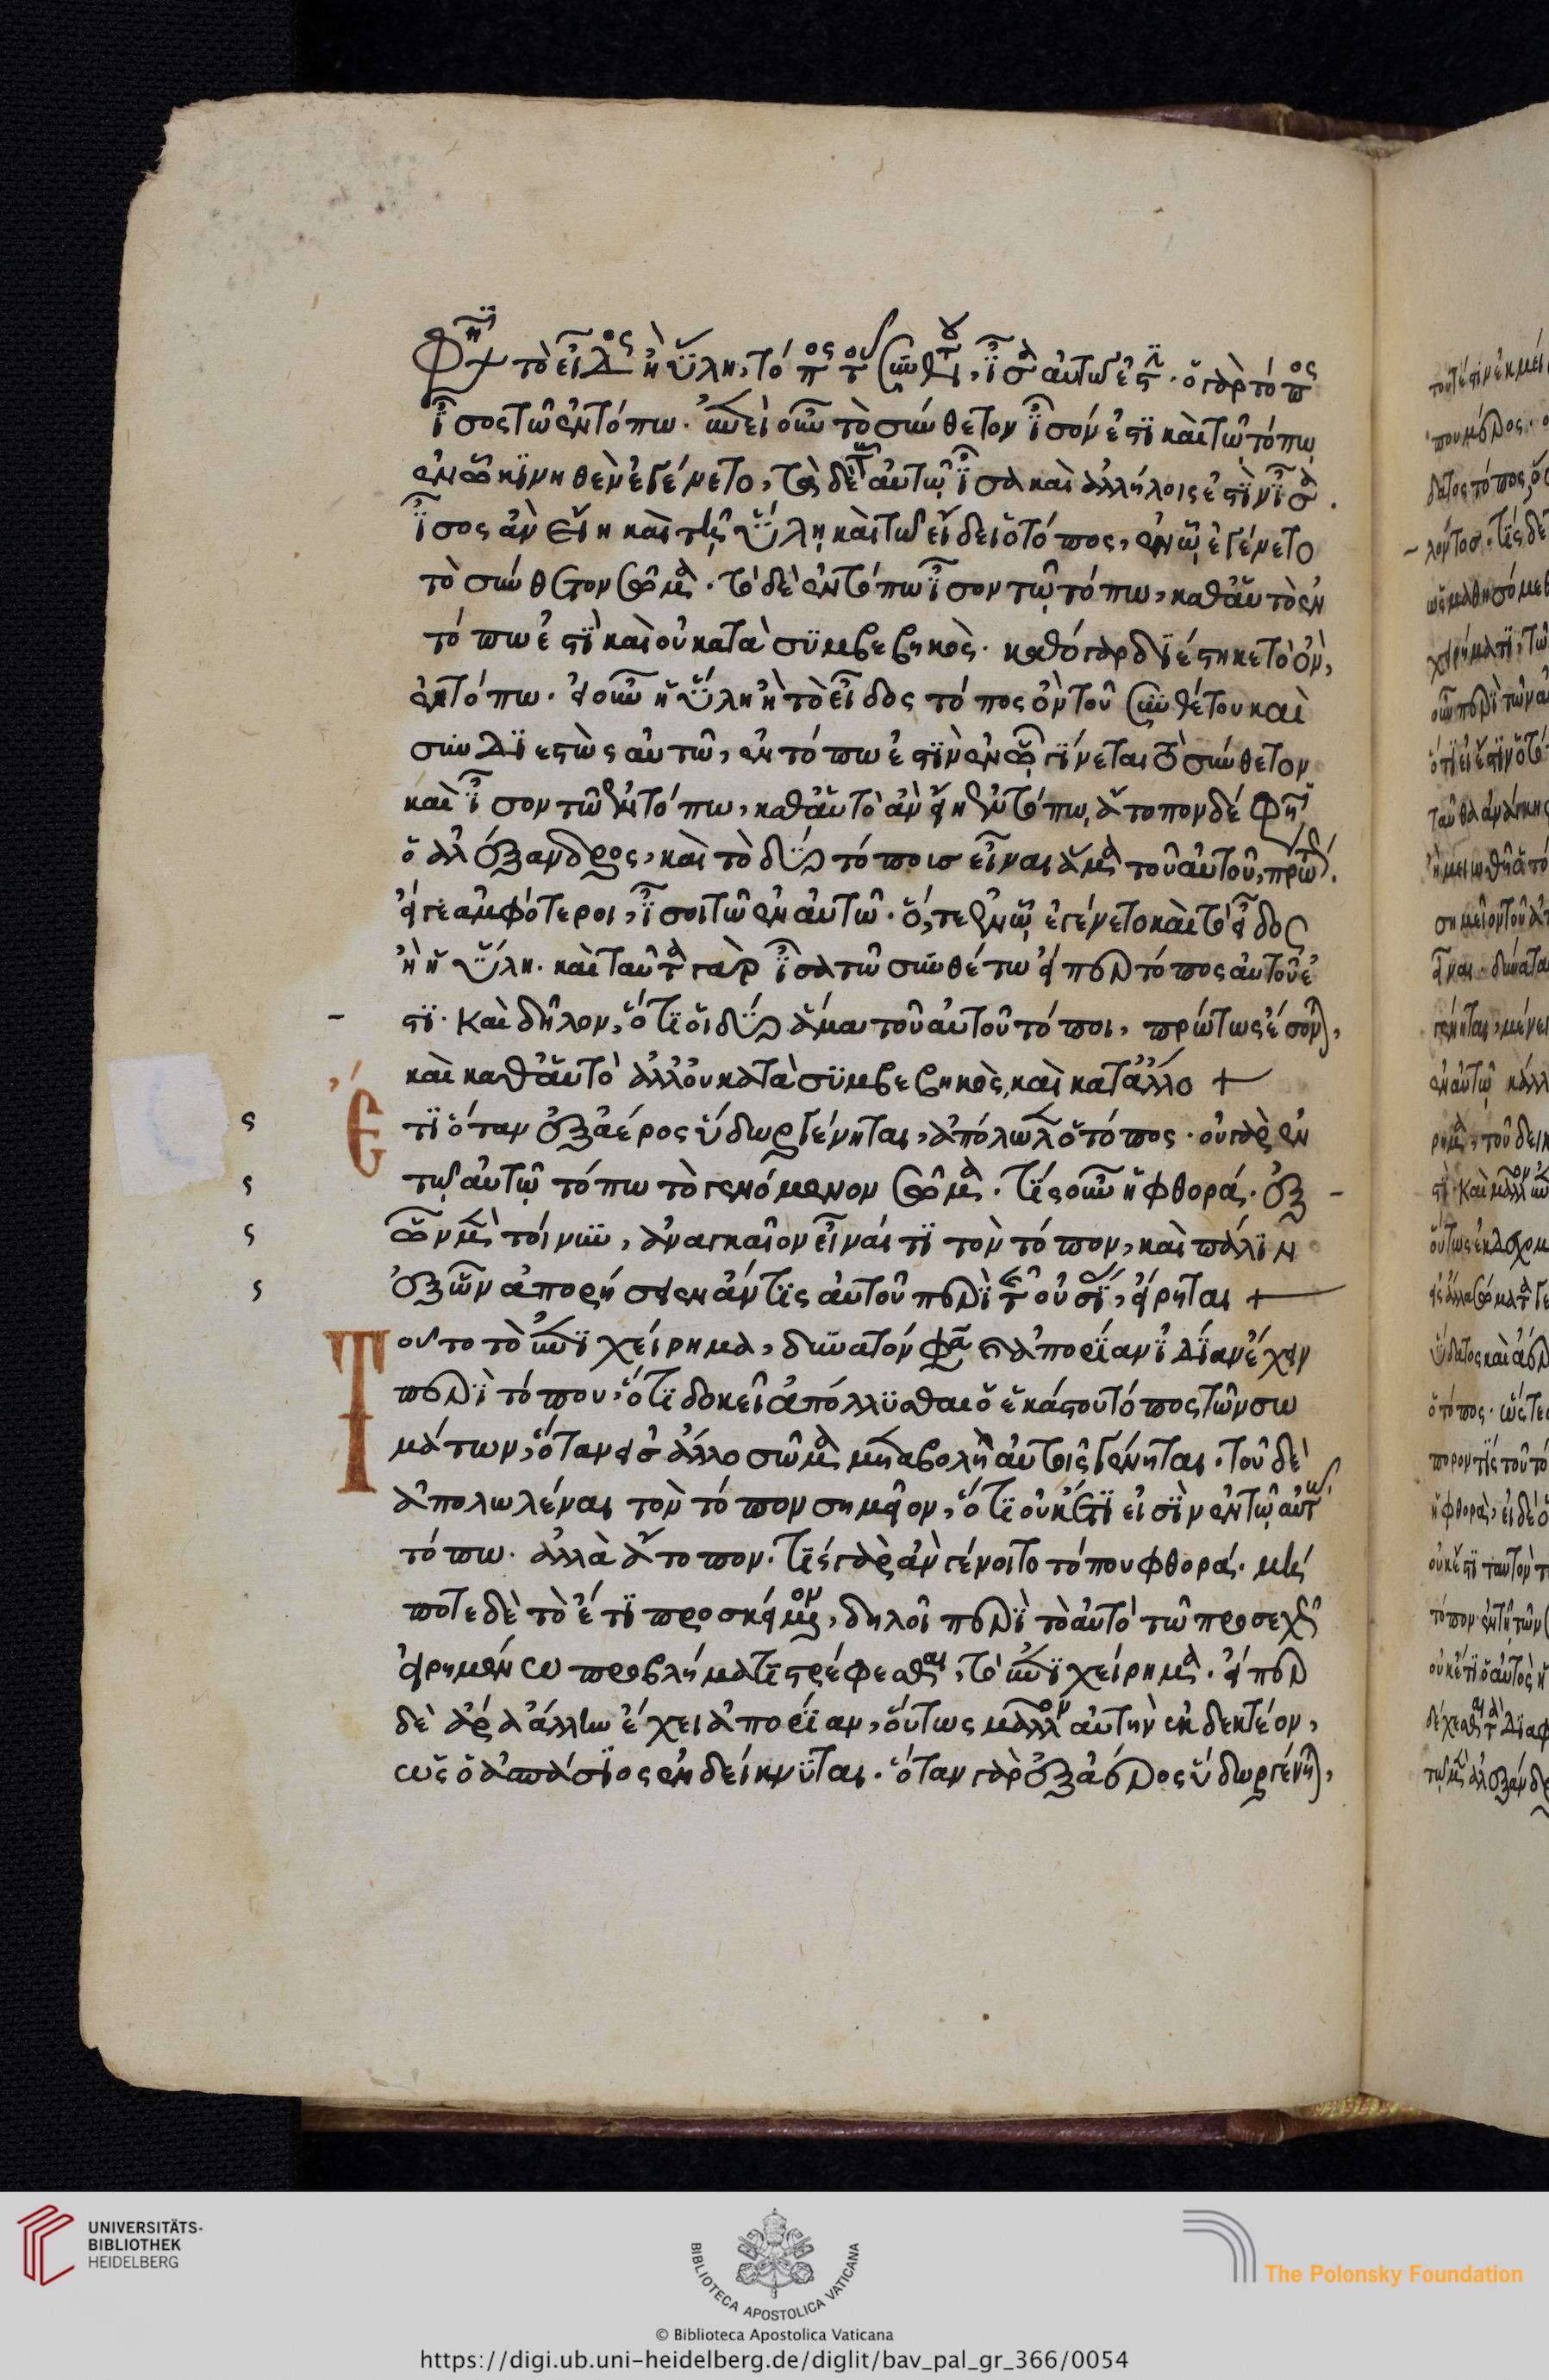 τὸ εἶδος ἢ ὕλη, τόπος τοῦ συνθέτου, ἴσα αὐτῷ ἐστι. ὁ γὰρ τόπος
ἴσος τῷ ἐν τόπῳ. ἐπεὶ οὖν τὸ σύνθετον ἴσον ἐστὶ καὶ τῷ τόπῳ
ἐν ᾧ κινηθὲν ἐγένετο, τὰ δὲ τῷ αὐτῷ ἴσα καὶ ἀλλήλοις ἐστὶν ἴσα.
ἴσος ἂν εἴη καὶ τῇ ὕλῃ καὶ τῷ εἴδει ὁ τόπος, ἐν ᾧ ἐγένετο
τὸ σύνθετον σῶμα. τὸ δὲ ἐν τόπῳ ἴσον τῷ τόπῳ, καθ' αὑτὸ ἐν
τόπῳ ἐστὶ καὶ οὐ κατὰ συμβεβηκός. καθὸ γὰρ διέστηκε τὸ ὂν,
ἐν τόπῳ. εἰ οὖν ἡ ὕλη ἢ τὸ εἶδος τόπος ὂν τοῦ συνθέτου καὶ
συνδιεστὼς αὐτῷ, ἐν τόπῳ ἐστὶν ἐν ᾧ γίνεται τὸ σύνθετον
καὶ ἴσον τῷ ἐν τόπῳ, καθ' αὑτὸ ἂν εἴη ἐν τόπῳ, ἄτοπον δέ φησιν
ὁ ἀλέξανδρος, καὶ τὸ δύο τόπους εἶναι ἅμα τοῦ αὐτοῦ, πρώτως.
εἴγε ἀμφότεροι, ἴσοι τῷ ἐν αὐτῷ. ὅ,τε ἐν ᾧ ἐγένετο καὶ τὸ εἶδος
ἢ ἡ ὕλη. καὶ ταῦτα γὰρ ἴσα τῷ συνθέτῳ εἴπερ τόπος αὐτοῦ ἐ
στι. καὶ δῆλον, ὅτι οἱ δύο ἅμα τοῦ αὐτοῦ τόποι, πρώτως ἔσονται,
καὶ καθ' αὑτὸ ἀλλ' οὐ κατὰ συμβεβηκὸς, καὶ κατ' ἄλλο +
Ἔτι ὅταν ἐξ ἀέρος ὕδωρ γένηται, ἀπόλωλεν ὁ τόπος. οὐ γὰρ ἐν
τῷ αὐτῷ τόπῳ τὸ γενόμενον σῶμα. τίς οὖν ἡ φθορά. ἐξ
ὧν μὲν τοίνυν, ἀναγκαῖον εἶναί τι τὸν τόπον, καὶ πάλιν
ἐξ ὧν ἀπορήσειεν ἄν τις αὐτοῦ περὶ τῆς οὐσίας, εἴρηται +
Τοῦτο τὸ ἐπιχείρημα, δυνατόν φασι καὶ ἀπορίαν ἰδίαν ἔχειν
περὶ τόπου, ὅτι δοκεῖ ἀπόλλυσθαι ὁ ἑκάστου τόπος τῶν σω
μάτων, ὅταν εἰς ἄλλο σῶμα μεταβολὴ αὐτοῖς γένηται. τοῦ δὲ
ἀπολωλέναι τὸν τόπον σημεῖον, ὅτι οὐκέτι εἰσὶν ἐν τῷ αὐτῷ
τόπῳ. ἀλλὰ ἄτοπον. τίς γὰρ ἂν γένοιτο τόπου φθορά. μή
ποτε δὲ τὸ ἔτι προσκείμενον, δηλοῖ περὶ τὸ αὐτὸ τῷ προσεχῶς
εἰρημένῳ προβλήματι στρέφεσθαι, τὸ ἐπιχείρημα. εἴπερ
δὲ ἄρα ἄλλην ἔχει ἀπορίαν, οὕτως μᾶλλον αὐτὴν ἐκδεκτέον,
ὡς ὁ ἀσπάσιος ἐνδείκνυται. ὅταν γὰρ ἐξ ἀέρος ὕδωρ γένηται,
UNIVERSITÄTS-
BIBLIOTHEK
HEIDELBERG
BIBLIOTECA APOSTOLICA VATICANA
The Polonsky Foundation
© Biblioteca Apostolica Vaticana
https://digi.ub.uni-heidelberg.de/diglit/bav_pal_gr_366/0054